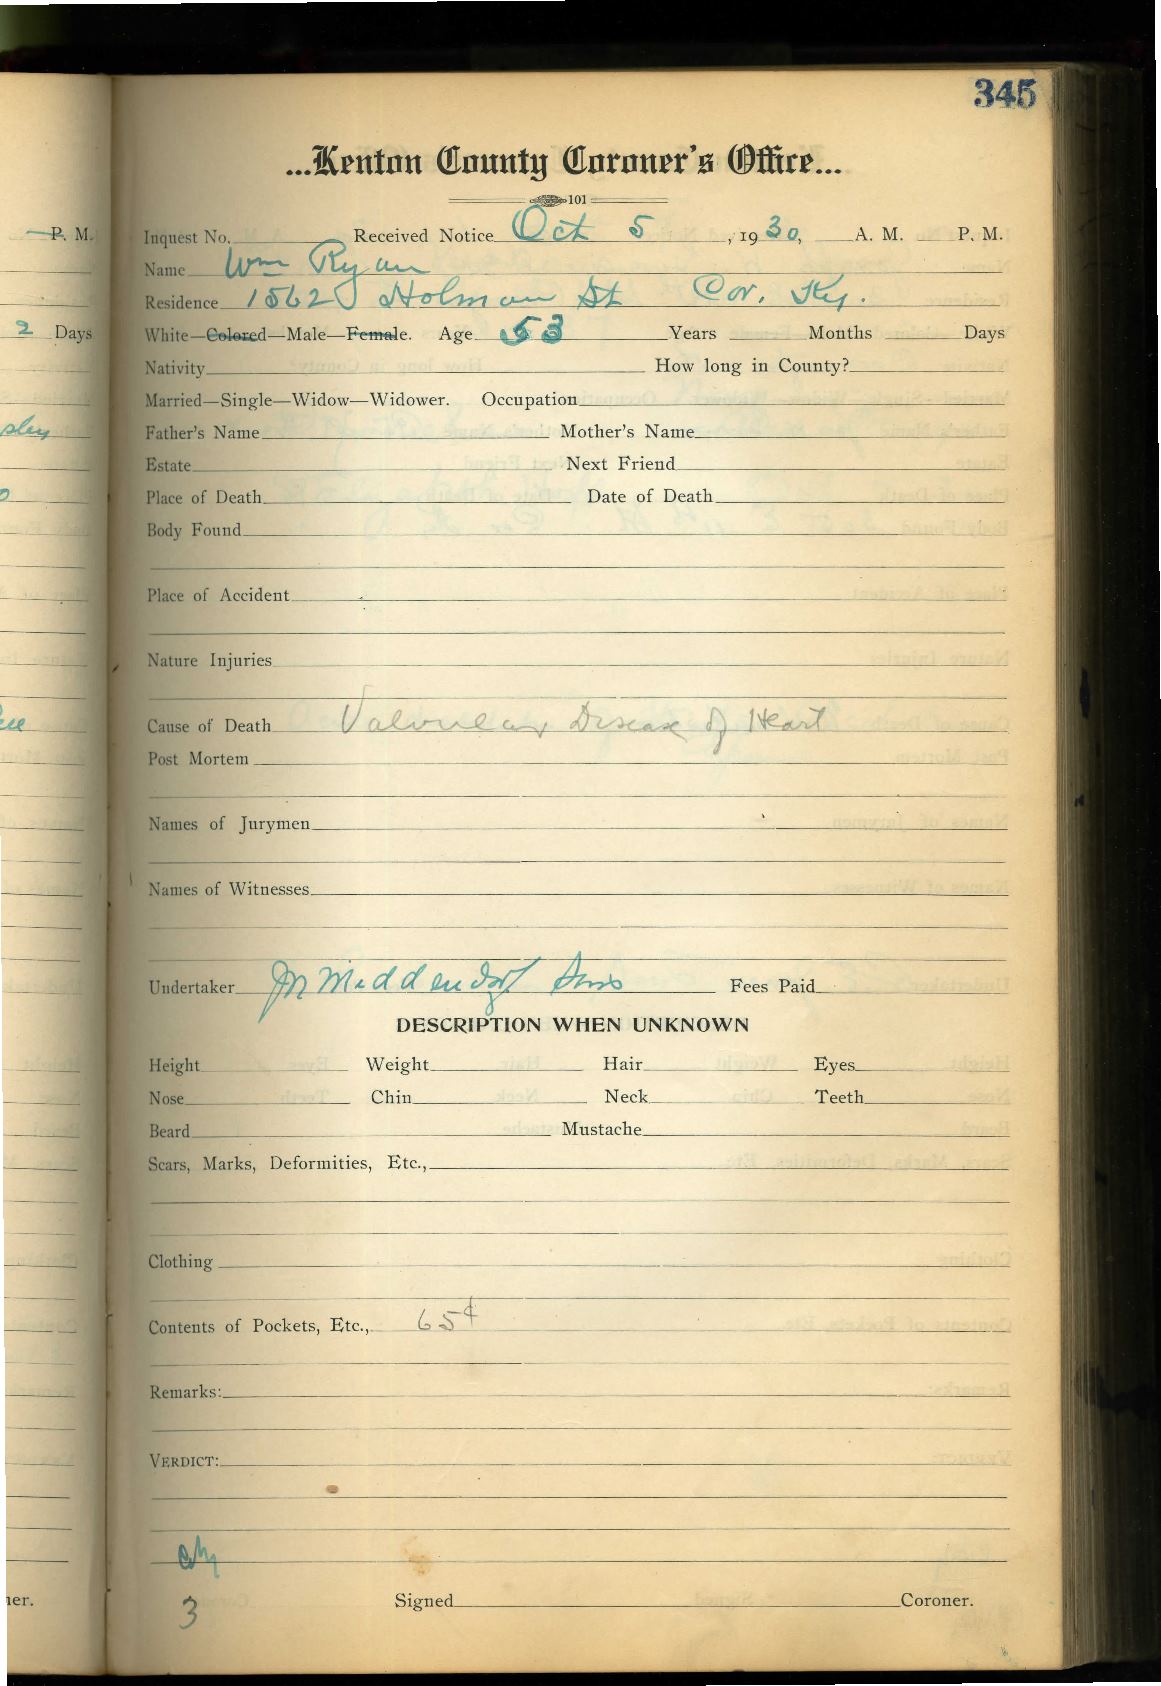 345
...Kenton County Coroner's Office...
101
P. M.
Inquest No. Received Notice Oct 5, 1930, A. M. P. M.
Name Wm Ryan
Residence 1562 Holman St Cov. Ky.
2 Days
White—Colored—Male—Female. Age 53 Years Months Days
Nativity How long in County?
Married—Single—Widow—Widower. Occupation
Father's Name Mother's Name
Estate Next Friend
Place of Death Date of Death
Body Found
Place of Accident
Nature Injuries
Cause of Death Valvular Disease of Heart
Post Mortem
Names of Jurymen
Names of Witnesses
Undertaker Jn Middendorf Sons Fees Paid
DESCRIPTION WHEN UNKNOWN
Height Weight Hair Eyes
Nose Chin Neck Teeth
Beard Mustache
Scars, Marks, Deformities, Etc.,
Clothing
Contents of Pockets, Etc., 65¢
Remarks:
VERDICT:
3 Signed Coroner.